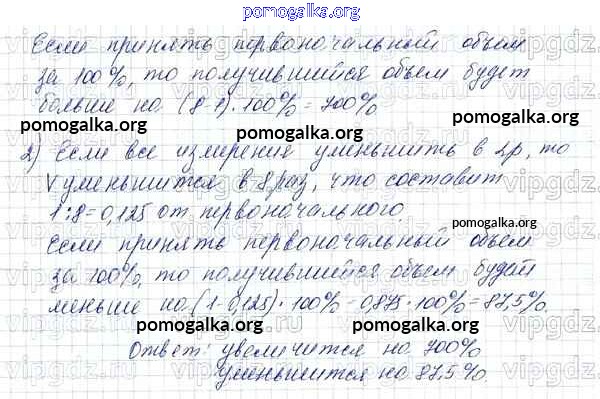 pomogalka.org
Если принять первоначальный объем
за 100%, то получившийся объем будет
больше на (8-1)·100% = 700%
pomogalka.org pomogalka.org
2) Если все измерения уменьшить в 2р, то
V уменьшится в 8 раз, что составит
1:8=0,125 от первоначального.
pomogalka.org
Если принять первоначальный объем
за 100%, то получившийся объем будет
меньше на (1-0,125)·100% = 0,875·100% = 87,5%.
pomogalka.org pomogalka.org
Ответ: увеличится на 700%
уменьшится на 87,5%.
vipgdz.ru